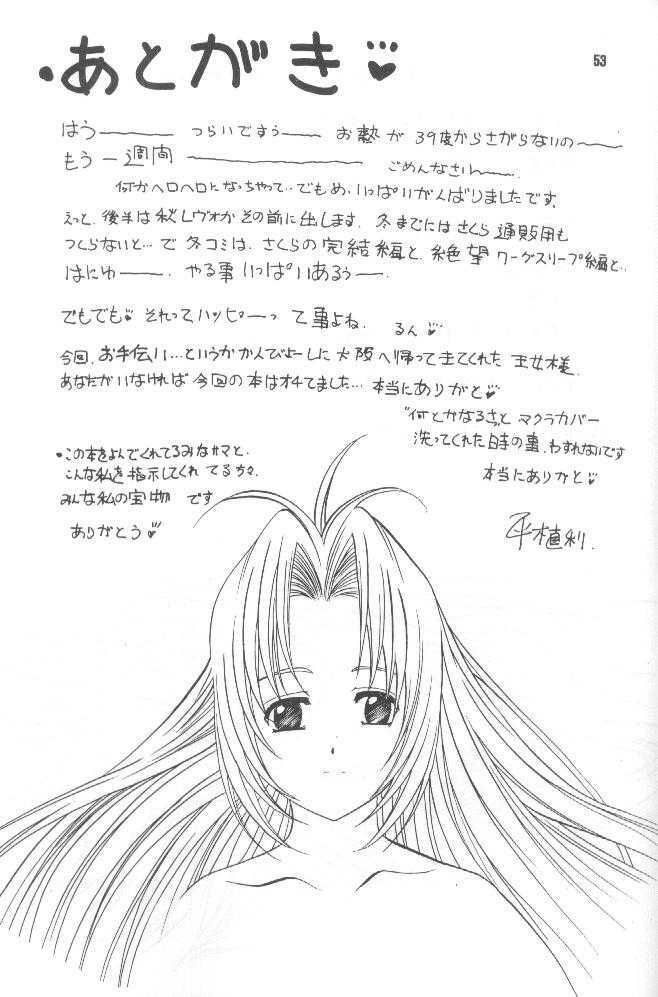 ・あとがき
53
はうーーー つらいですぅーー お熱が39度からさがらないのーー
もう一週間ーーーーーー ごめんなさいーー.
何かヘロヘロになっちゃって‥でもめいっぱいがんばりましたです.
えっと、後半は秋レヴォかその前に出します. 冬までにはさくら通販用も
つくらないと…で冬コミは、さくらの完結編と、絶望ワーゲスリープ編と‥
はにゅーー. やる事いっぱいあるぅーー.
でもでも♥それってハッピーって事よね. るん♥
今回、お手伝い…というかかんびょーしに大阪へ帰ってきてくれた王女様.
あなたがいなければ今回の本はオチてました…本当にありがと♥
"何とかなるさっ"とマクラカバー
洗ってくれた時の事、わすれないです
本当にありがと♥
・この本をよんでくれてるみなサマと、
こんな私を指示してくれてる方々.
みんな私の宝物です
ありがとう♥
平植利.